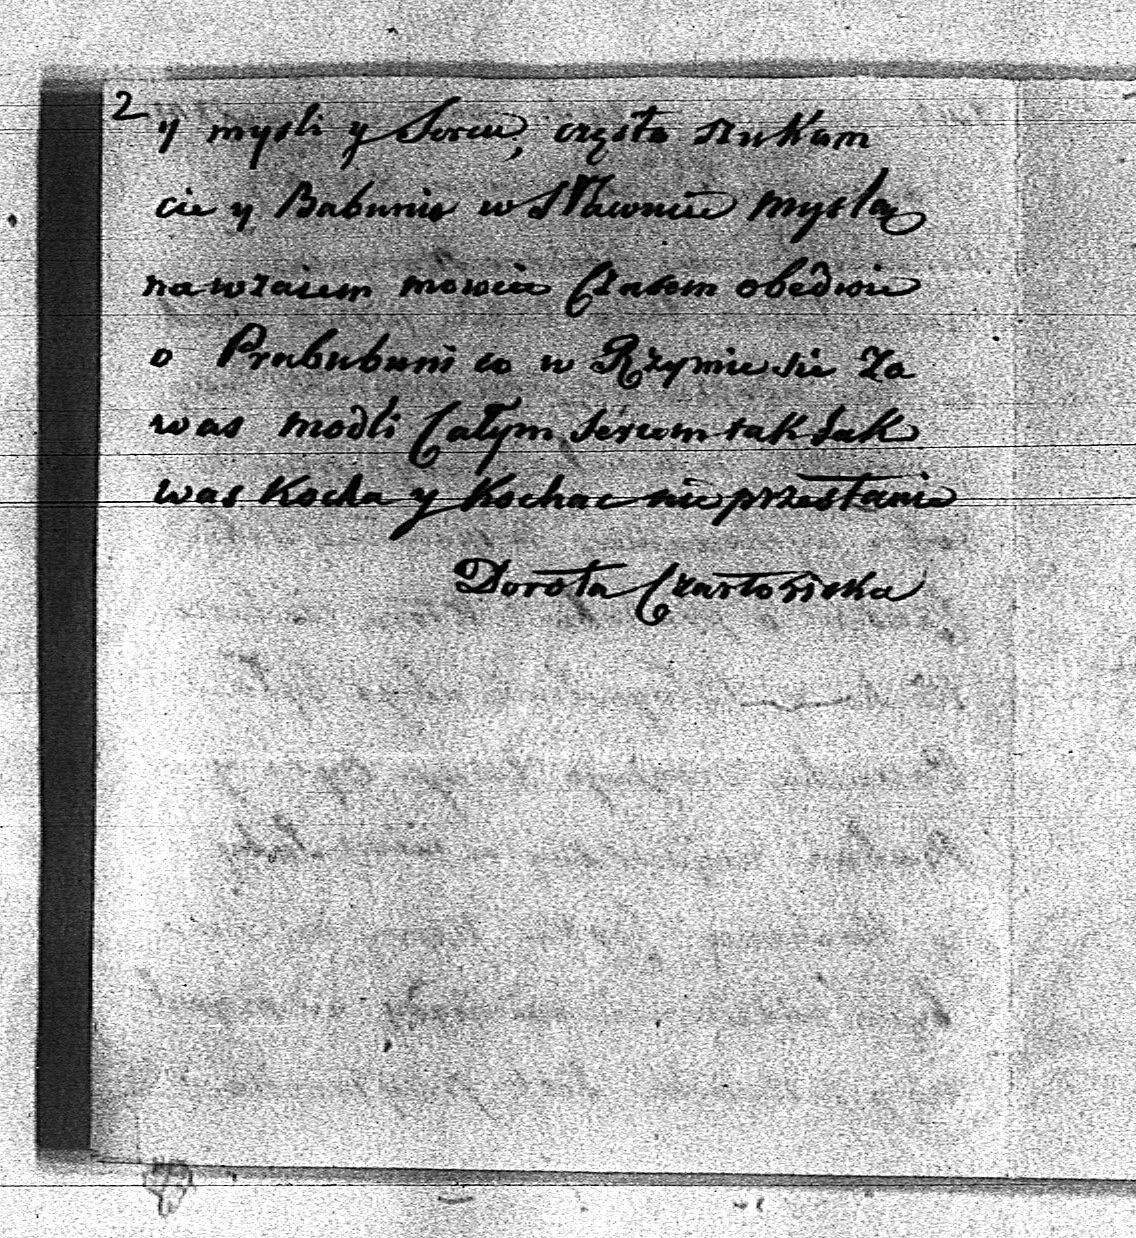 2
y mysli y Sercu, częsta szukam
cie y Babunie w Sławucie myslą
nawzaiem mowcie Czasem obedwie
o Prababuni co w Rzymie sie Za
was modli Całym sercem tak Jak
was Kocha y Kochac nie przestanie
Dorota Czartoriska